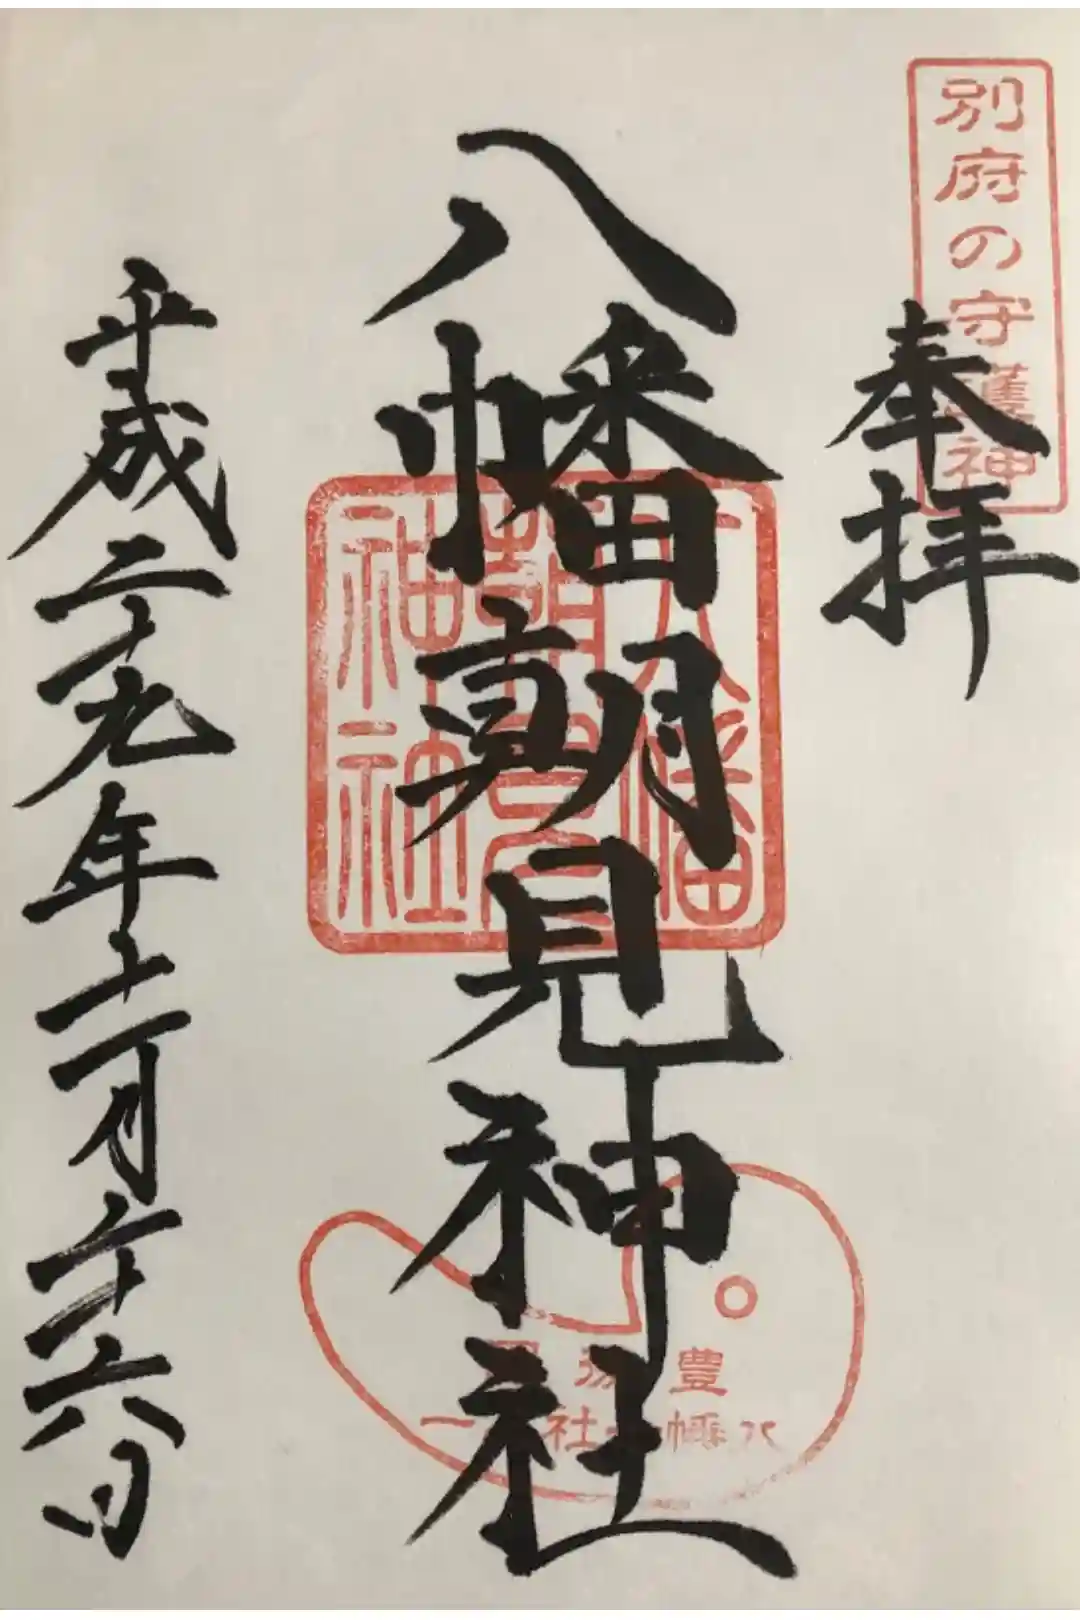 別府の守護神
奉拝
八幡朝見神社
八幡
朝見
神社
豊後国
八幡
社
一
平成二十九年十一月二十六日